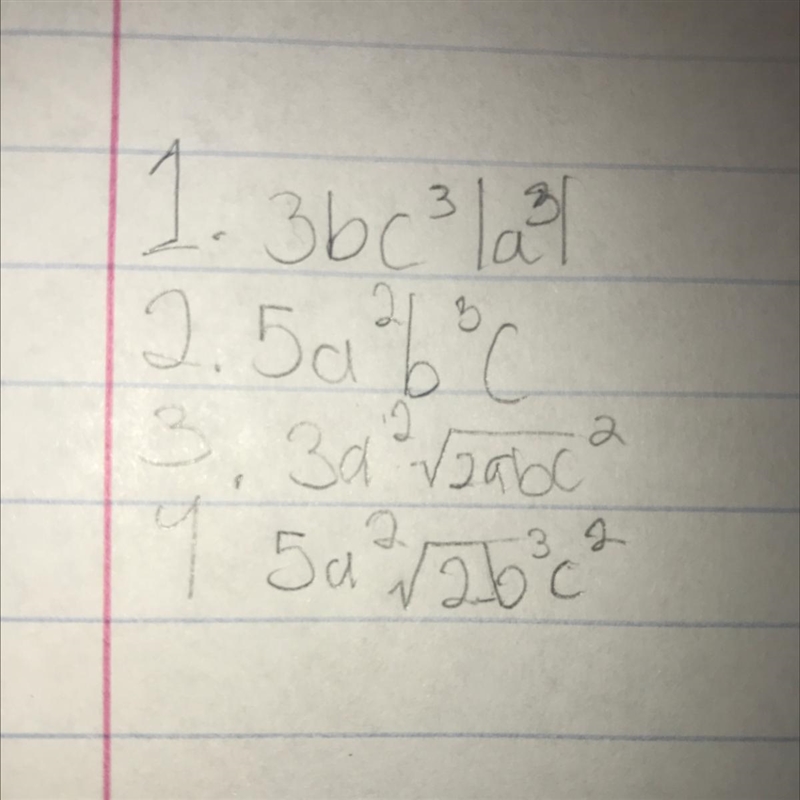 1. 3bc³|a³|
2. 5a²b³c
3. 3a²√2abc²
4 5a²√2b³c²